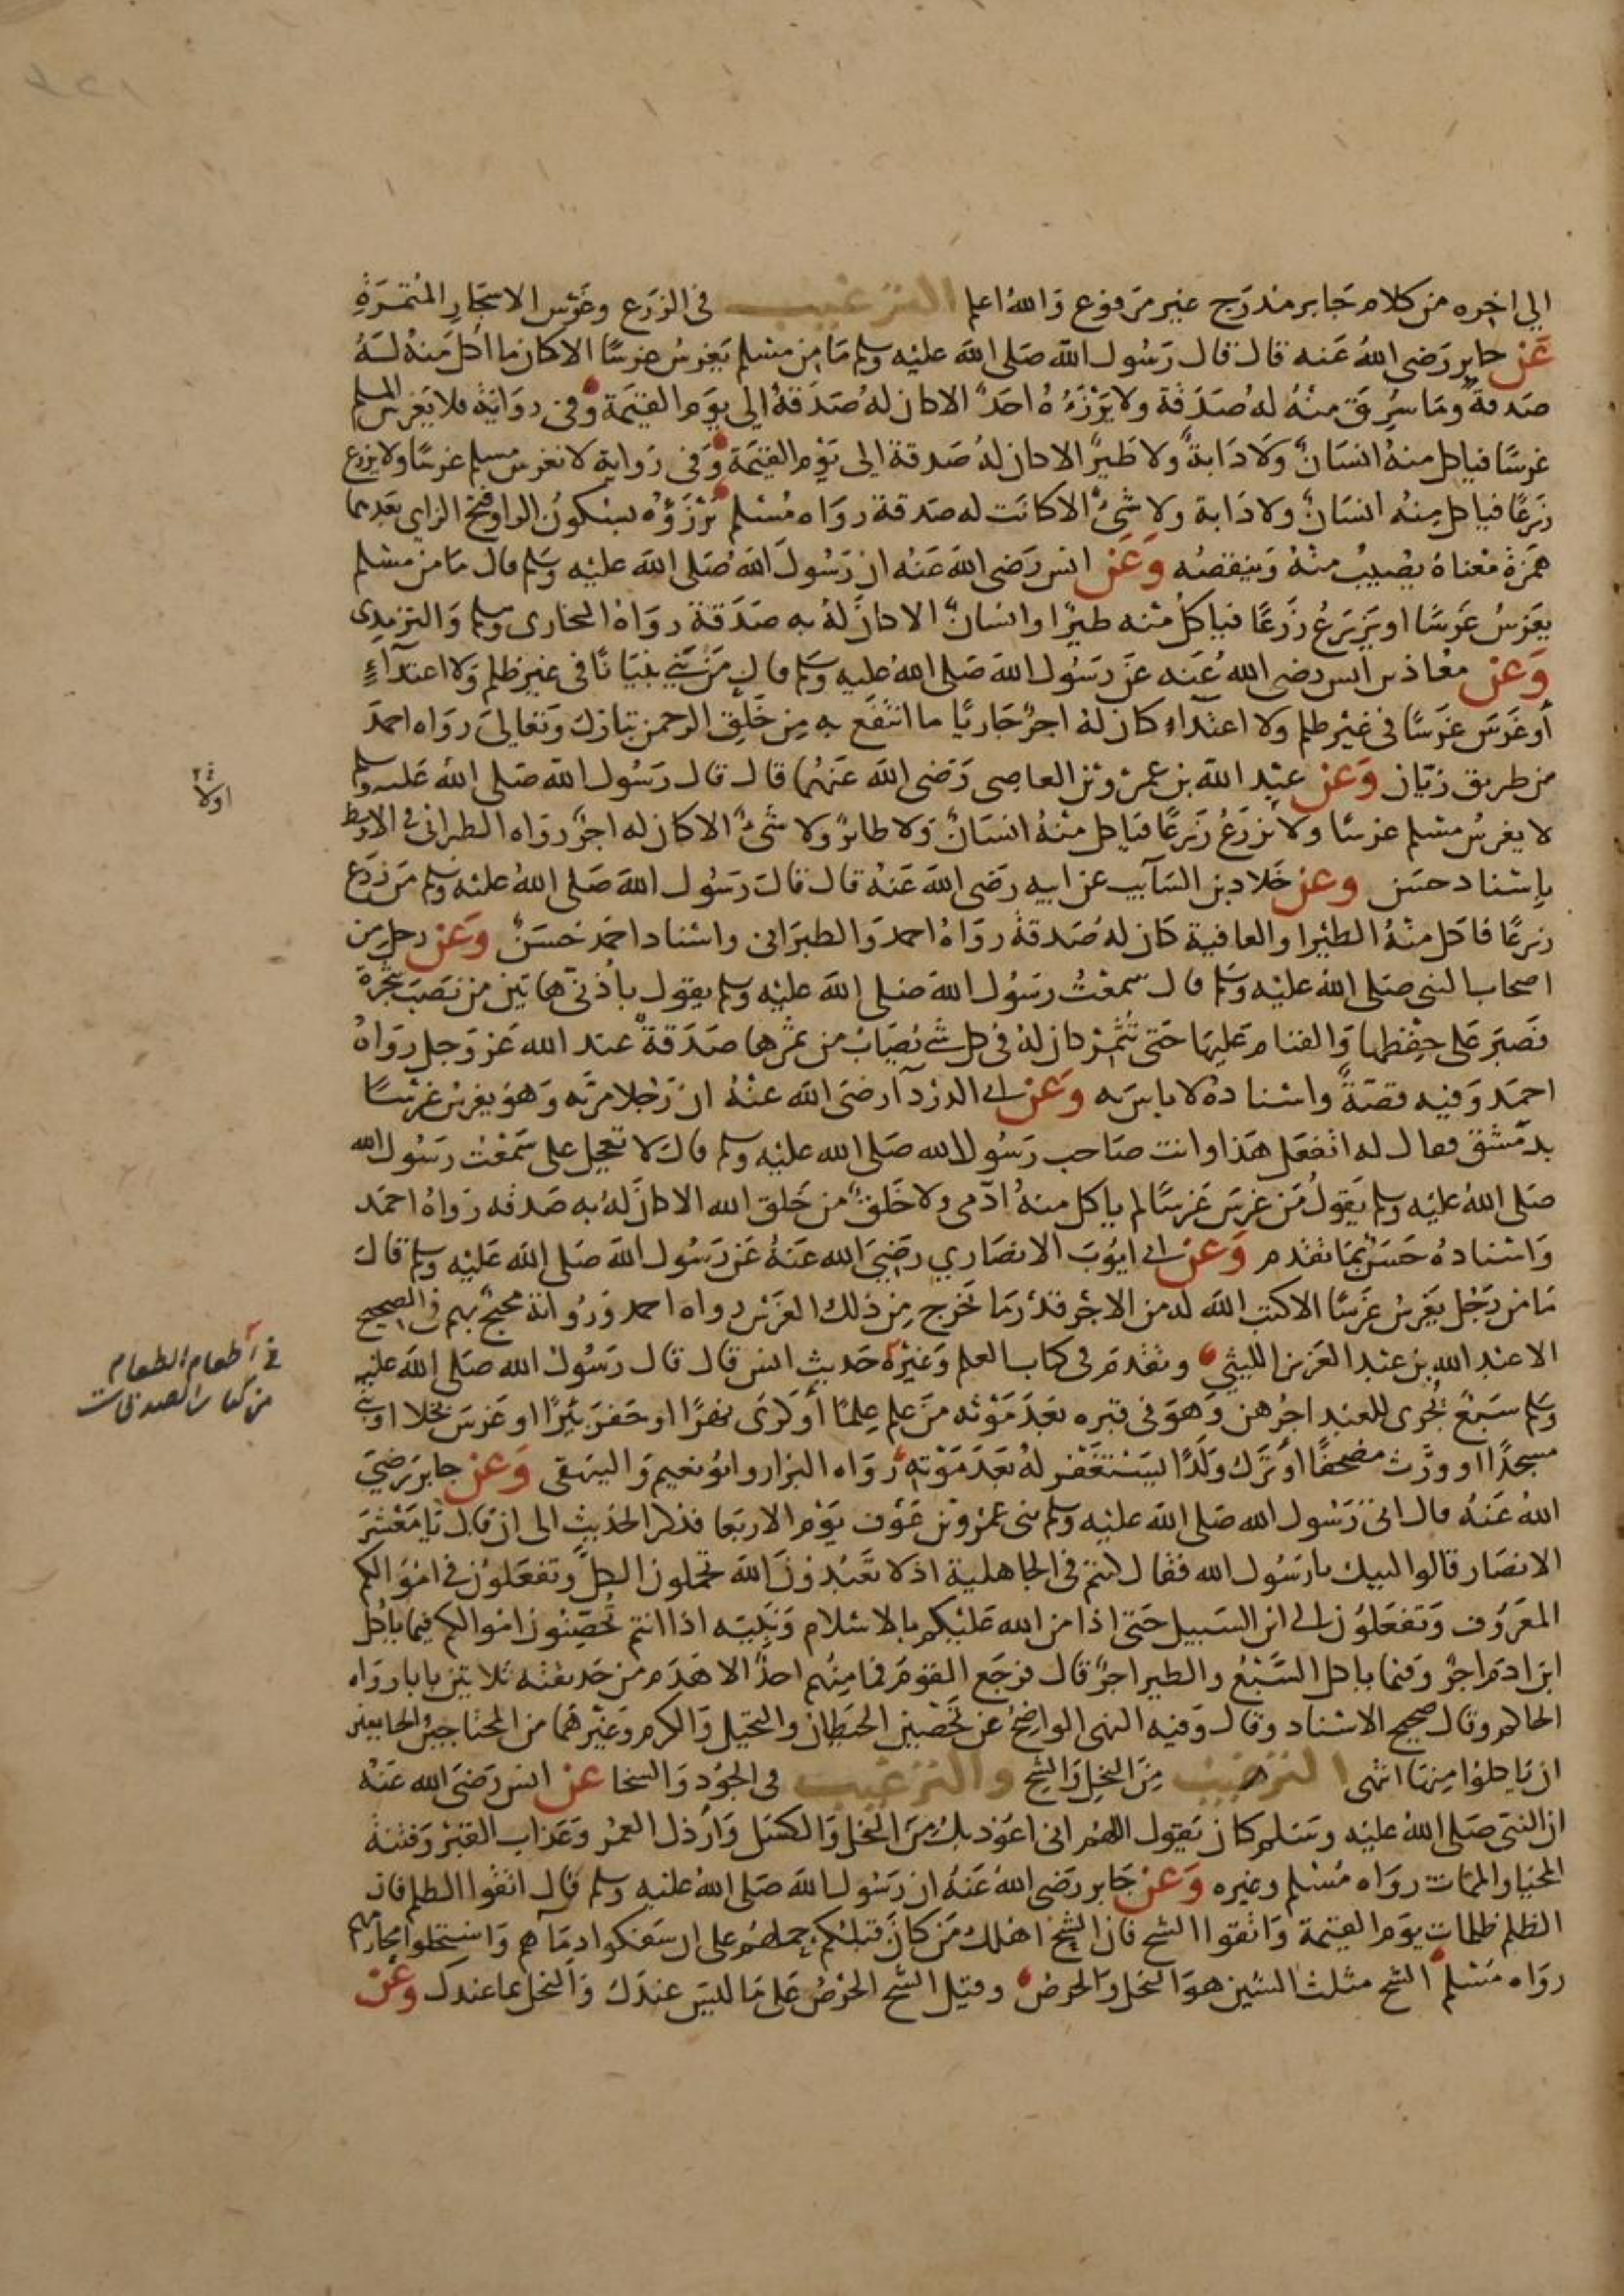 الي اخره من كلام جابر مندرج غير مرفوع والله اعلم الترغيب في الزرع وغرس الاشجار المثمرة
عن جابر رضي الله عنه قال قال رسول الله صلى الله عليه وسلم ما من مسلم يغرس غرسا الا كان ما اكل منه له
صدقة وما سرق منه له صدقة ولا يرزءه احد الا كان له صدقة الى يوم القيمة وفي رواية فلا يغرس المسلم
غرسا فياكل منه انسان ولا دابة ولا طير الا كان له صدقة الى يوم القيمة وفي رواية لا يغرس مسلم غرسا ولا يزرع
زرعا فياكل منه انسان ولا دابة ولا شئ الا كانت له صدقة رواه مسلم يرزؤه بسكون الرا وفتح الزاي بعدهما
همزة معناه يصيب منه وينقصه وعن انس رضى الله عنه ان رسول الله صلى الله عليه وسلم قال ما من مسلم
يغرس غرسا او يزرع زرعا فياكل منه طيرا وانسان الا كان له به صدقة رواه البخارى ومسلم والترمذى
وعن معاذ بن انس رضى الله عنه عن رسول الله صلى الله عليه وسلم قال من بني بنيانا في غير ظلم ولا اعتداء
أو غرس غرسا في غير ظلم ولا اعتداء كان له اجر جاريا ما انتفع به من خلق الرحمن تبارك وتعالى رواه احمد
من طريق زبان وعن عبد الله بن عمرو بن العاصى رضى الله عنهما قال قال رسول الله صلى الله عليه وسلم
لا يغرس مسلم غرسا ولا يزرع زرعا فياكل منه انسان ولا طائر ولا شئ الا كان له اجر رواه الطبرانى في الاوسط
باسناد حسن وعن خلاد بن السآيب عن ابيه رضى الله عنه قال قال رسول الله صلى الله عليه وسلم من زرع
زرعا فاكل منه الطير او العافية كان له صدقة رواه احمد والطبرانى واسناد احمد حسن وعن رجل من
اصحاب النبى صلى الله عليه وسلم قال سمعت رسول الله صلى الله عليه وسلم يقول باذني هاتين من نصب شجرة
فصبر على حفظها والقيام عليها حتى تثمر كان له في كل شئ يصاب من ثمرها صدقة عند الله عز وجل رواه
احمد وفيه قصة واسناده لا باس به وعن ابي الدردآ رضى الله عنه ان رجلا مر به وهو يغرس غرسا
بدمشق فقال له اتفعل هذا وانت صاحب رسول الله صلى الله عليه وسلم قال لا تعجل على سمعت رسول الله
صلى الله عليه وسلم يقول من غرس غرسا لم ياكل منه ادمى ولا خلق من خلق الله الا كان له به صدقه رواه احمد
واسناده حسن بما تقدم وعن ابي ايوب الانصاري رضي الله عنه عن رسول الله صلى الله عليه وسلم قال
ما من رجل يغرس غرسا الا كتب الله له من الاجر قدر ما يخرج من ذلك الغرس رواه احمد ورواته محتج بهم في الصحيح
الا عبد الله بن عبد العزيز الليثي وتقدم في كتاب العلم وغيره حديث انس قال قال رسول الله صلى الله عليه
وسلم سبع تجرى للعبد اجرهن وهو في قبره بعد موته من علم علما أو كرى نهرا او حفر بئرا او غرس نخلا او بنى
مسجدا او ورث مصحفا او ترك ولدا يستغفر له بعد موته رواه البزار وابو نعيم والبيهقى وعن جابر رضي
الله عنه قال اتى رسول الله صلى الله عليه وسلم بنى عمرو بن عوف يوم الاربعا فذكر الحديث الى ان قال يا معشر
الانصار قالوا لبيك يا رسول الله فقال كنتم في الجاهلية اذ لا تعبدون الله تحملون الكل وتفعلون في اموالكم
المعروف وتفعلون الى ابن السبيل حتى اذا من الله عليكم بالاسلام ونبيه اذا انتم تحصنون اموالكم فيما ياكل
ابن ادم اجر وفيما ياكل السبع والطير اجر قال فرجع القوم فما منهم احد الا هدم من حديقته ثلاثين بابا رواه
الحاكم وقال صحيح الاسناد وقال وفيه النهى الواضح عن تحصين الحيطان والنخيل والكرم وغيرهما من المحتاجين الجايعين
ان ياكلوا منها انتهى الترهيب من البخل والشح والترغيب في الجود والسخا عن انس رضى الله عنه
ان النبى صلى الله عليه وسلم كان يقول اللهم انى اعوذ بك من البخل والكسل وارذل العمر وعذاب القبر وفتنة
المحيا والممات رواه مسلم وغيره وعن جابر رضى الله عنه ان رسول الله صلى الله عليه وسلم قال اتقوا الظلم فان
الظلم ظلمات يوم القيمة واتقوا الشح فان الشح اهلك من كان قبلكم حملهم على ان سفكوا دمآهم واستحلوا محارمهم
رواه مسلم الشح مثلث الشين هو البخل والحرص وقيل الشح الحرص على ما ليس عندك والبخل بما عندك وعن
اولا
في أطعام الطعام
من كتاب الصدقات